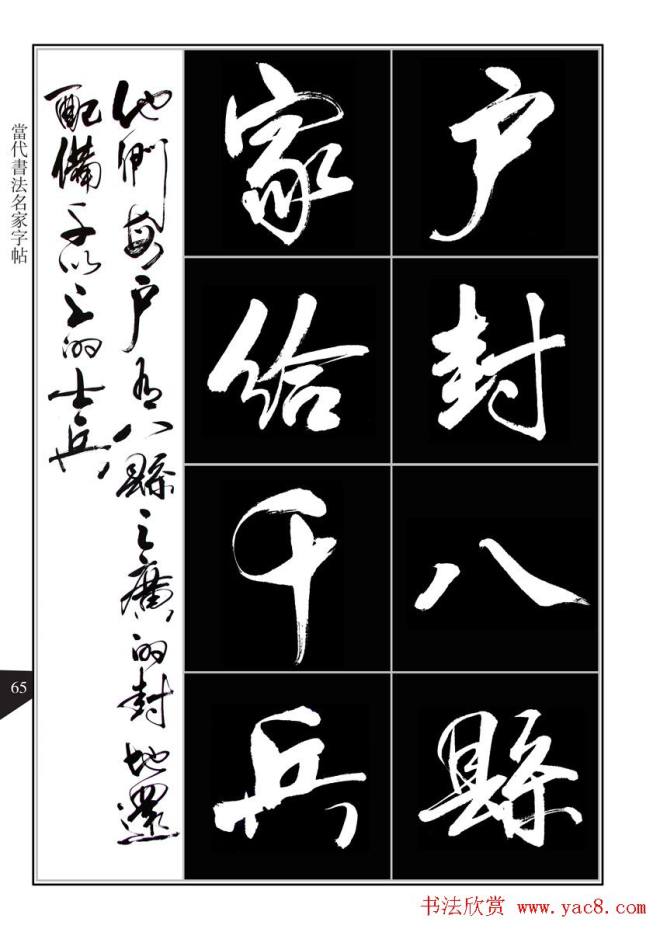 户封八縣
家給千兵
他們每户有八縣之廣的封地還
配備千以上的士兵
當代書法名家字帖
65
书法欣赏 www.yac8.com